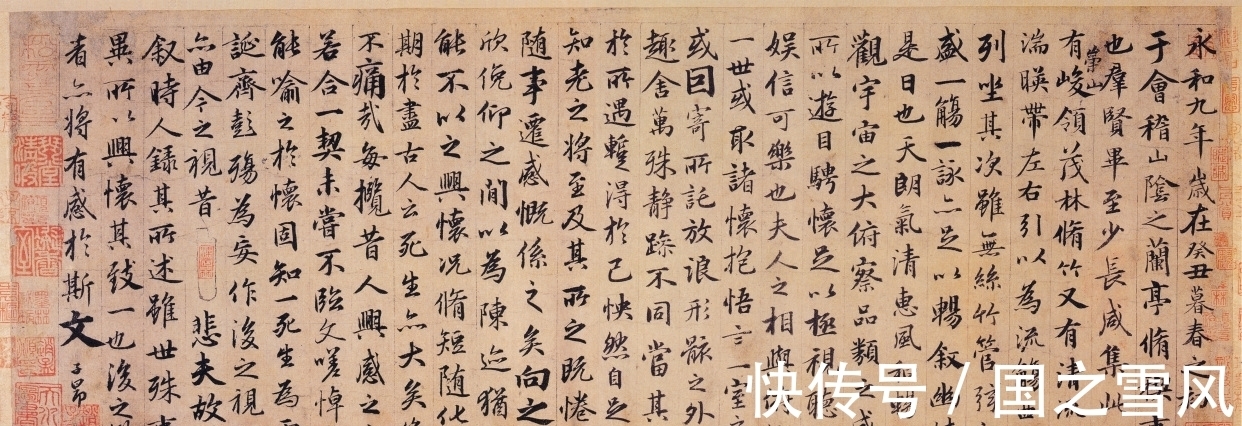 永和九年歲在癸丑暮春之
于會稽山陰之蘭亭脩禊事
也羣賢畢至少長咸集此
有崇山峻領茂林脩竹又有清流
湍暎帶左右引以為流觴曲
列坐其次雖無絲竹管弦
盛一觴一詠亦足以暢叙幽
是日也天朗氣清惠風和暢
觀宇宙之大俯察品類之盛
所以遊目騁懷足以極視聽
娛信可樂也夫人之相與
一世或取諸懷抱悟言一室
或因寄所託放浪形骸之外
趣舍萬殊静躁不同當其
於所遇蹔得於己怏然自足
知老之將至及其所之既惓
随事遷感慨係之矣向之
欣俛仰之閒以為陳迹猶
能不以之興懷况脩短随化
期於盡古人云死生亦大矣
不痛哉每攬昔人興感之
若合一契未嘗不臨文嗟悼
能喻之於懷固知一死生為
誕齊彭殤為妄作後之視
亦由今之視昔悲夫故
叙時人録其所述雖世殊事
異所以興懷其致一也後之
者亦將有感於斯文
子昂
快传号/国之雪风